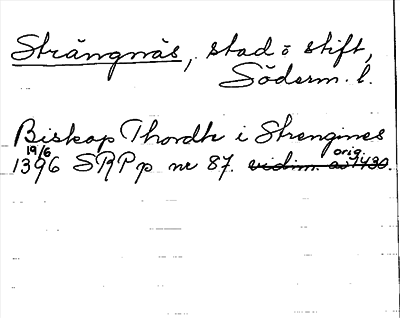 Strängnäs, stad o stift,
Söderm. l.
Biskop Thordh i Strengines
19/6 orig.
1396 SRPp nr 87. vidim. av 1430.